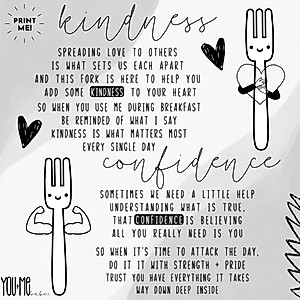 PRINT
ME!
kindness
SPREADING LOVE TO OTHERS
IS WHAT SETS US EACH APART
AND THIS FORK IS HERE TO HELP YOU
ADD SOME KINDNESS TO YOUR HEART
SO WHEN YOU USE ME DURING BREAKFAST
BE REMINDED OF WHAT I SAY
KINDNESS IS WHAT MATTERS MOST
EVERY SINGLE DAY
confidence
SOMETIMES WE NEED A LITTLE HELP
UNDERSTANDING WHAT IS TRUE,
THAT CONFIDENCE IS BELIEVING
ALL YOU REALLY NEED IS YOU
SO WHEN IT'S TIME TO ATTACK THE DAY,
DO IT WITH STRENGTH + PRIDE
TRUST YOU HAVE EVERYTHING IT TAKES
WAY DOWN DEEP INSIDE
YOU+ME